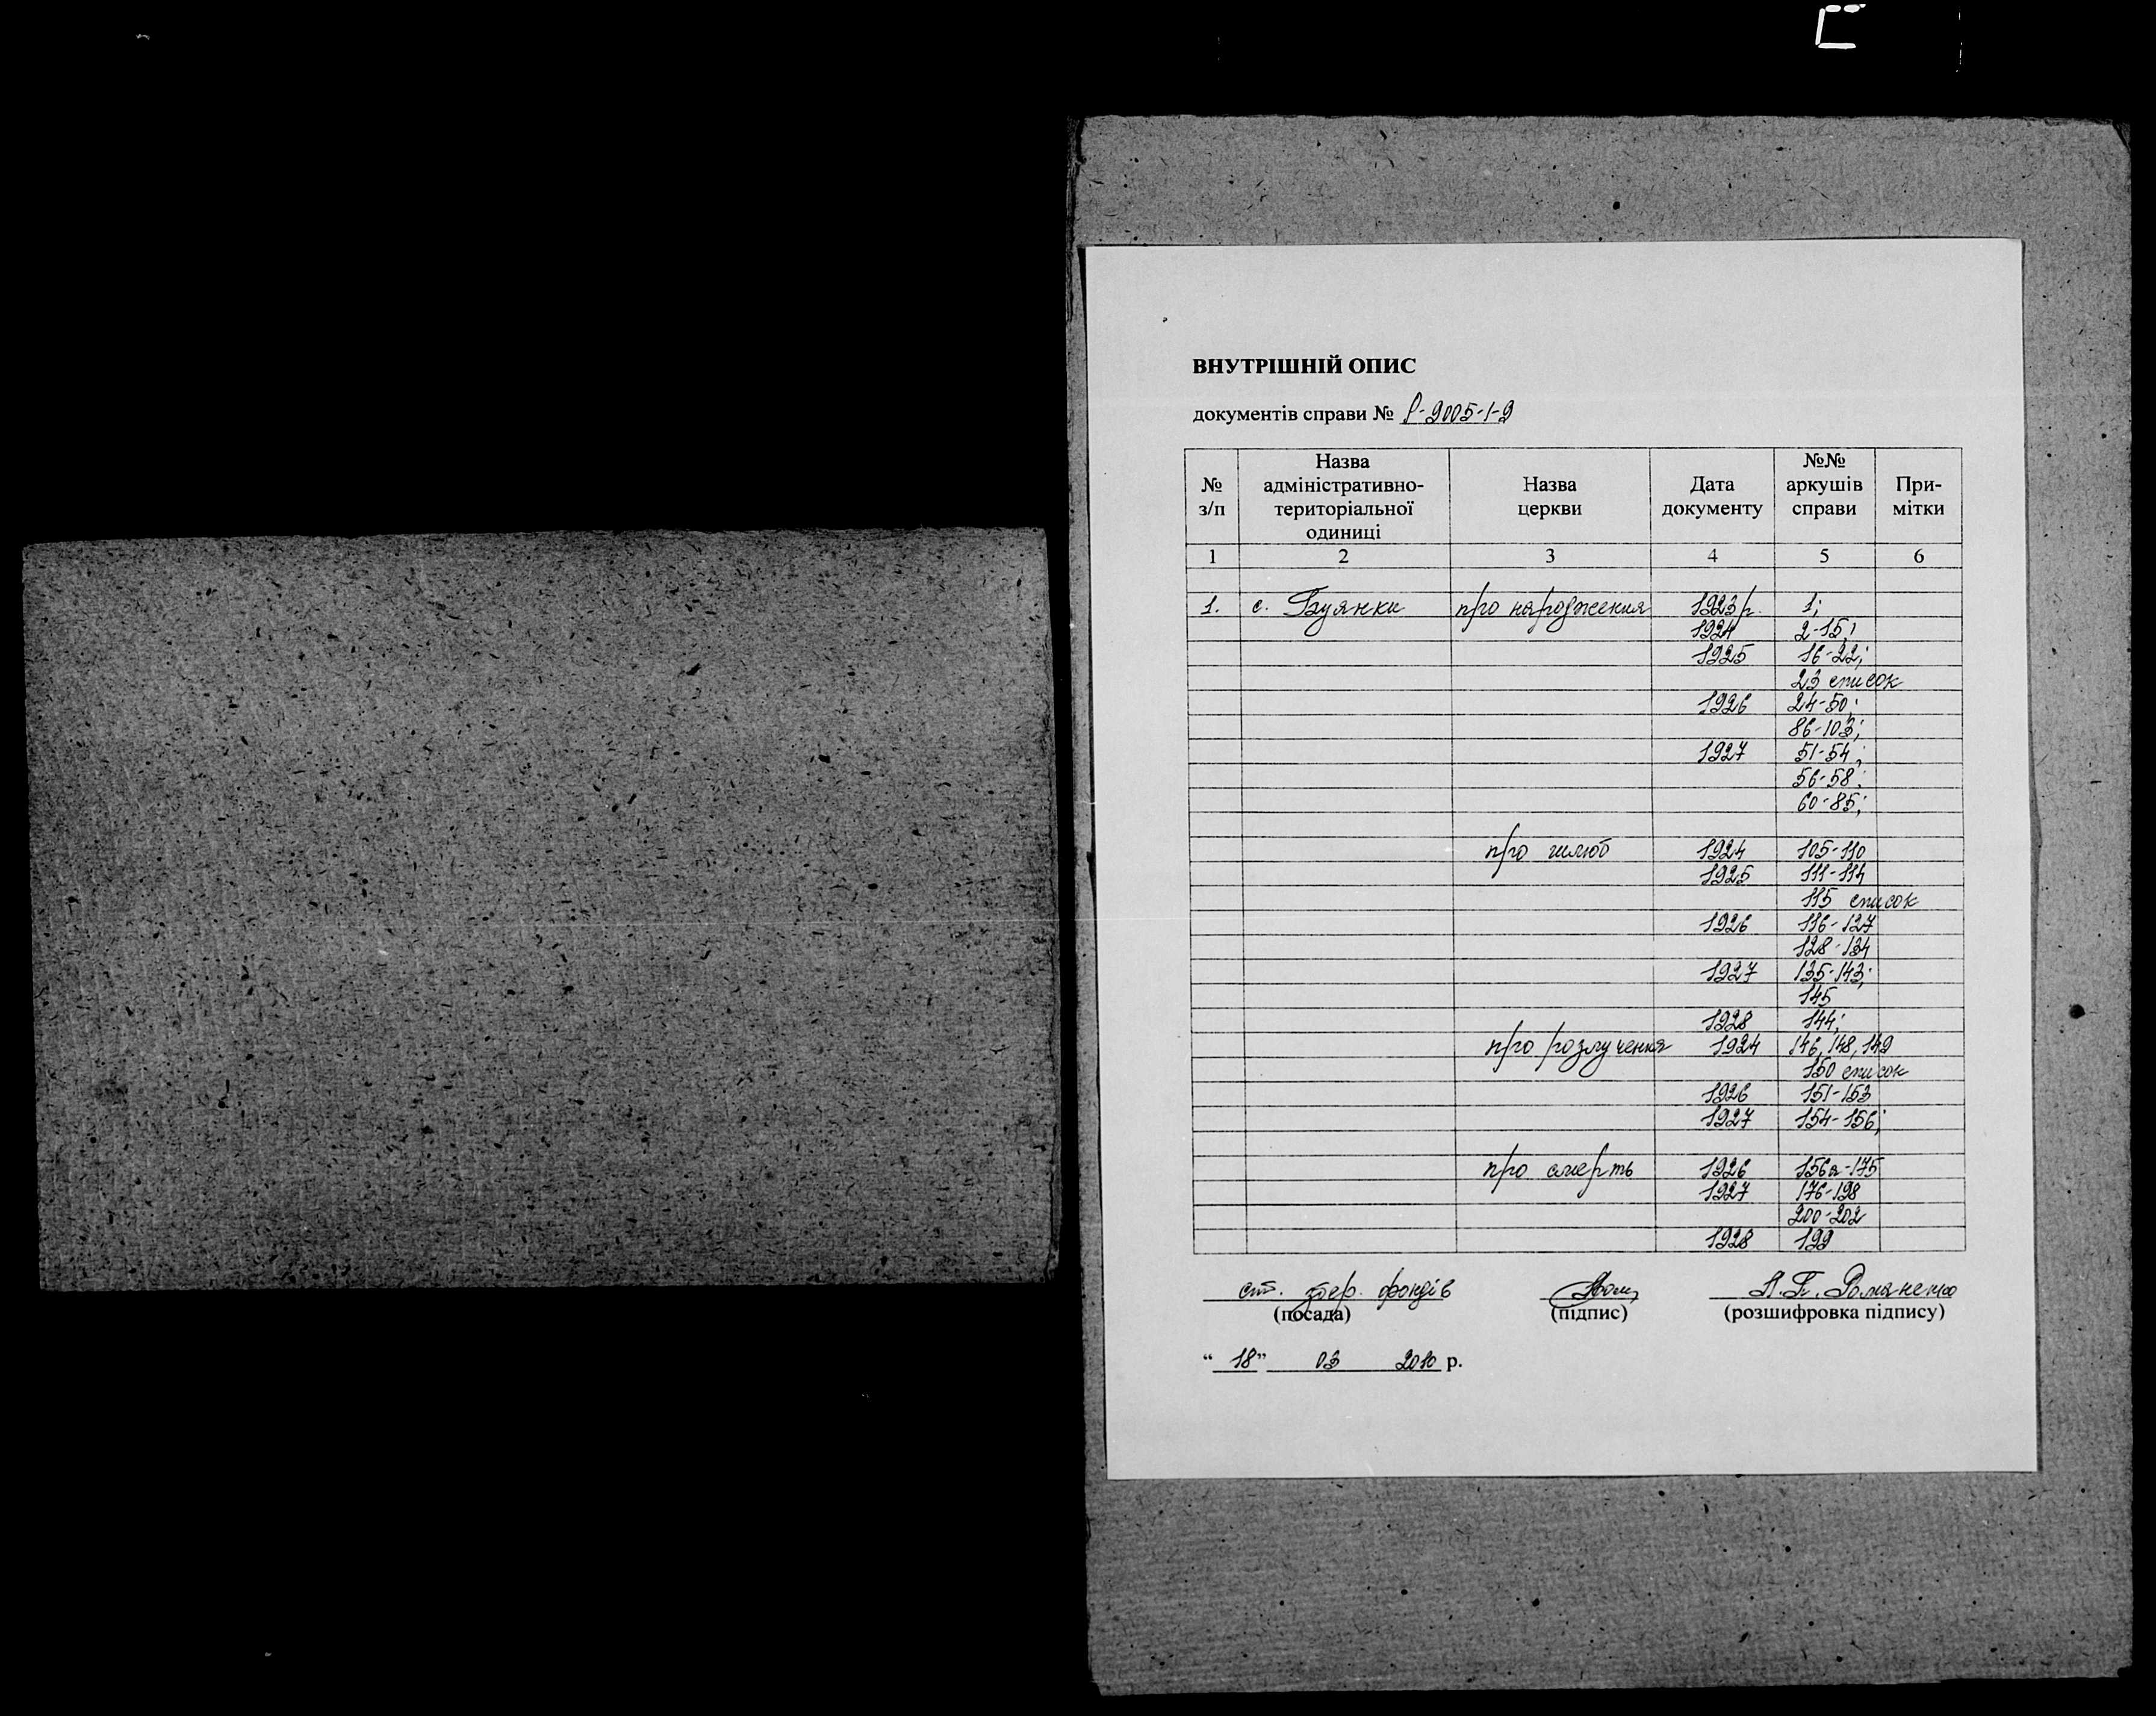 ВНУТРІШНІЙ ОПИС
документів справи № Р-9005-1-9
№ з/п Назва адміністративно-територіальної одиниці Назва церкви Дата документу №№ аркушів справи При-мітки
1 2 3 4 5 6
1. с. Буянки про народження 1923 р. 1;
1924 2-15;
1925 16-22;
23 список
1926 24-50;
86-103;
1927 51-54;
56-58;
60-85;
про шлюб 1924 105-110
1925 111-114
115 список
1926 116-127
128-134
1927 135-143;
145
1928 144;
про розлучення 1924 146, 148, 149
150 список
1926 151-153
1927 154-156;
про смерть 1926 156а-175
1927 176-198
200-202
1928 199
ст. збер. фондів Романенко
(посада) (підпис) (розшифровка підпису)
“18” 03 2010 р.